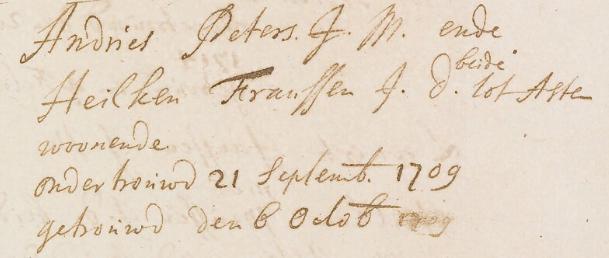 Andries Peters. J. M. ende
Heilken Franssen J. d. beide tot Asten
woonende
ondertrouwd 21 Septemb. 1709
getrouwd den 6 Octob 1709